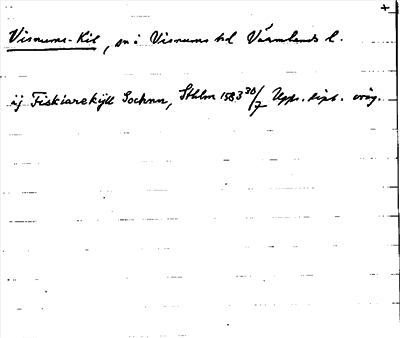 +
Visnums-Kil, sn i Visnums hd Värmlands l.
ij Fiskiarekijll Sochnn, Sthlm 1583 30/7 Upps. dipl. orig.